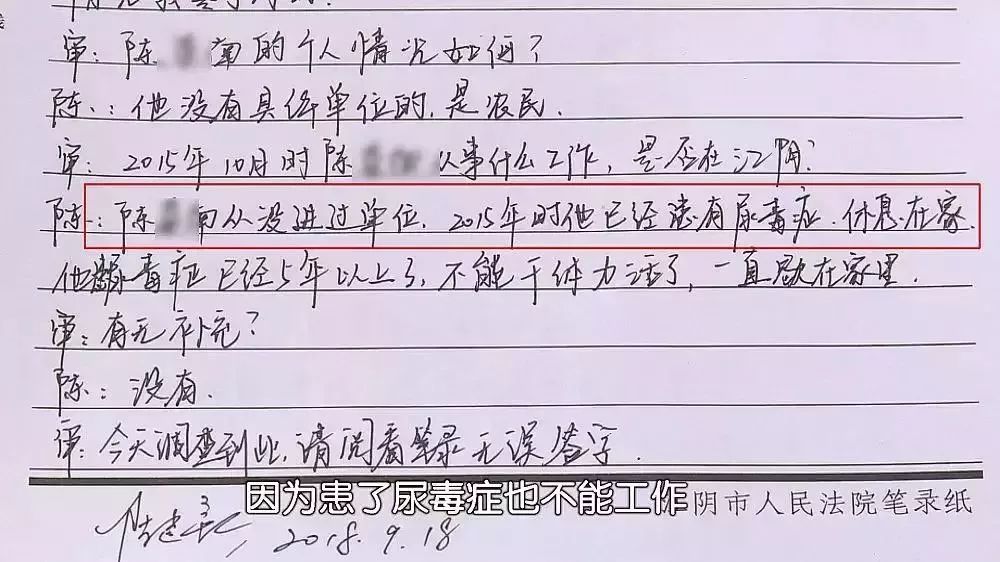 审：陈 南的个人情况如何？
陈：他没有具体单位的，是农民．
审：2015年10月时陈 从事什么工作，是否在江阴？
陈：陈 南从没进过单位，2015年时他已经患有尿毒症．休息在家．
他尿毒症已经5年以上了，不能干体力活了，一直歇在家里．
审：有无补充？
陈：没有．
审：今天调查到此，请阅看笔录无误签字．
因为患了尿毒症也不能工作
阴市人民法院笔录纸
2018.9.18